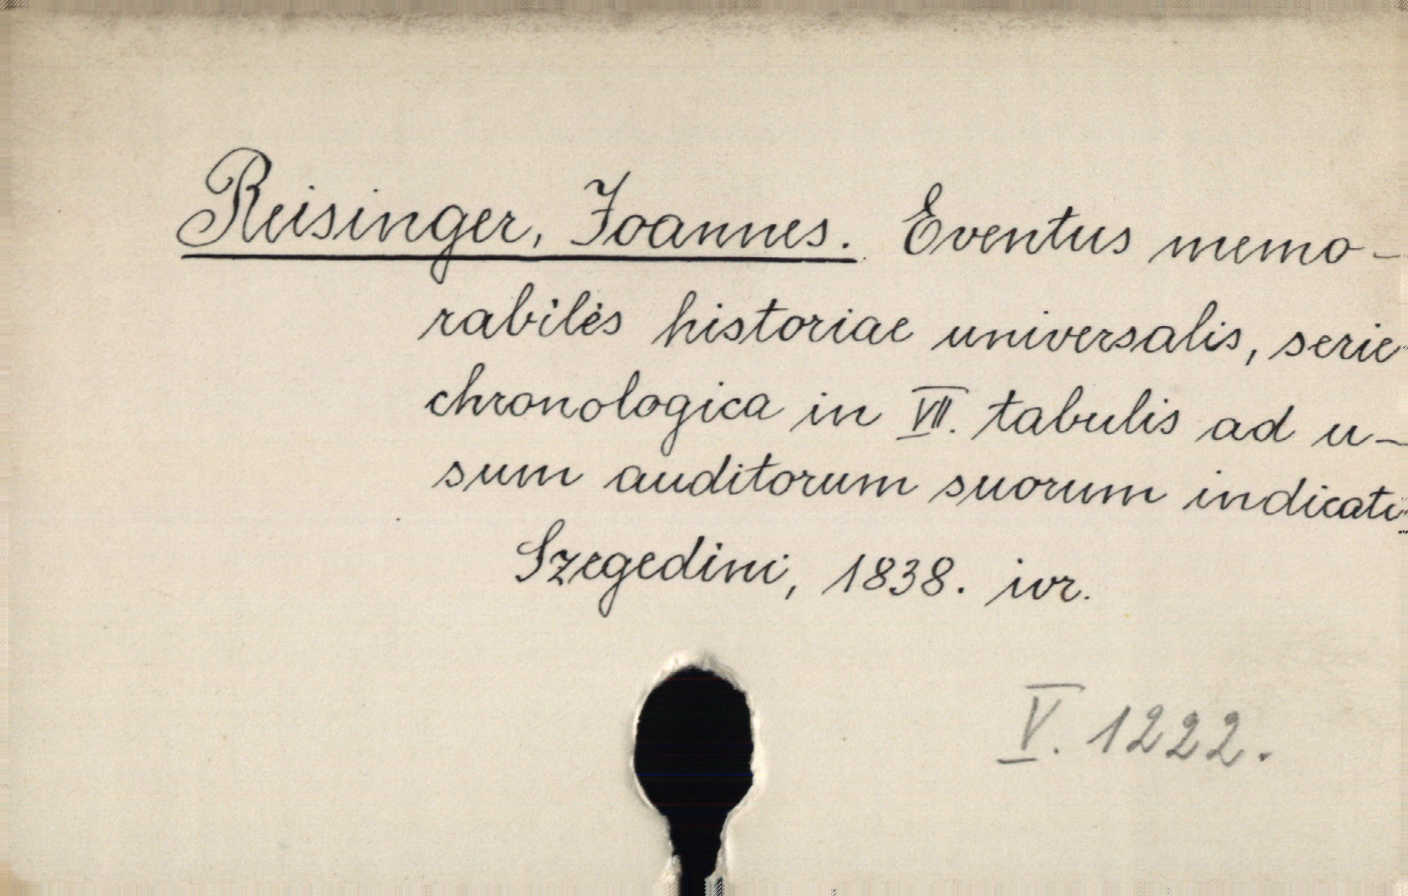 Reisinger, Joannes. Eventus memo-
rabiles historiae universalis, serie
chronologica in VII. tabulis ad u-
sum auditorum suorum indicati.
Szegedini, 1838. ivr.
V. 1222.